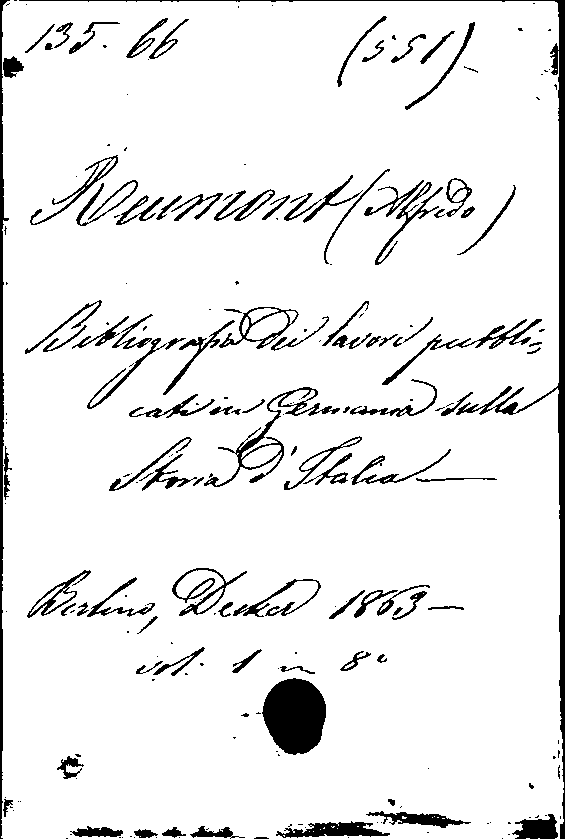 135. 66 (551)
Reumont (Alfredo)
Bibliografia dei lavori pubbli=
cati in Germania sulla
Storia d'Italia —
Berlino, Decker 1863 —
vol. 1 in 8°